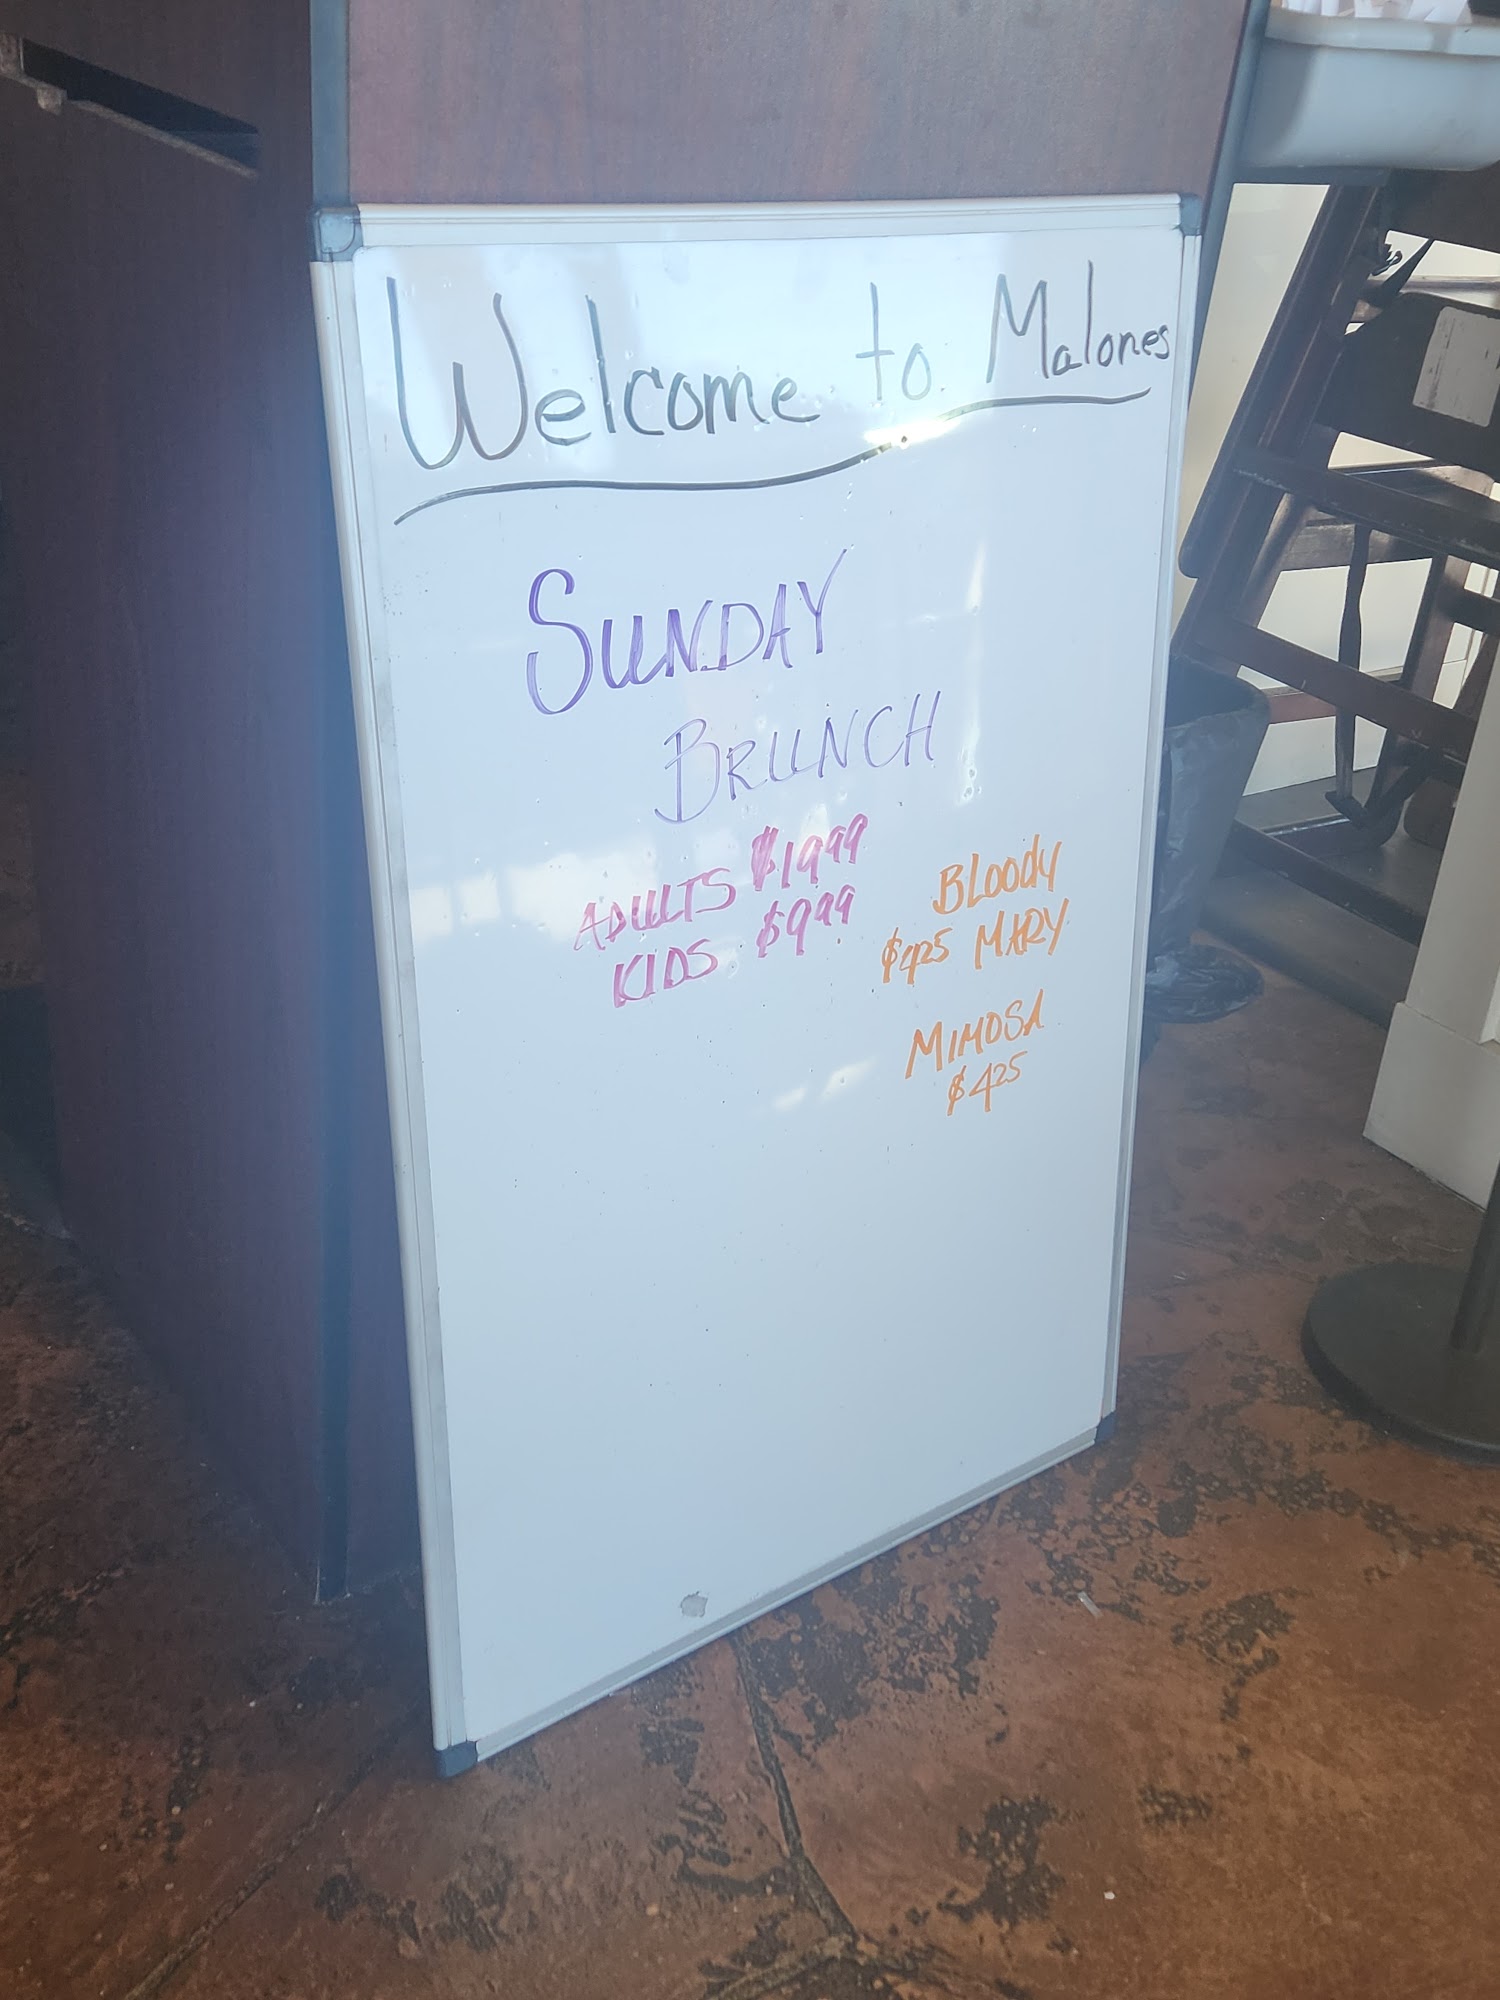 Welcome to Malones
SUNDAY
BRUNCH
ADULTS $19.99
KIDS $9.99
BLOODY
$4.25 MARY
MIMOSA
$4.25